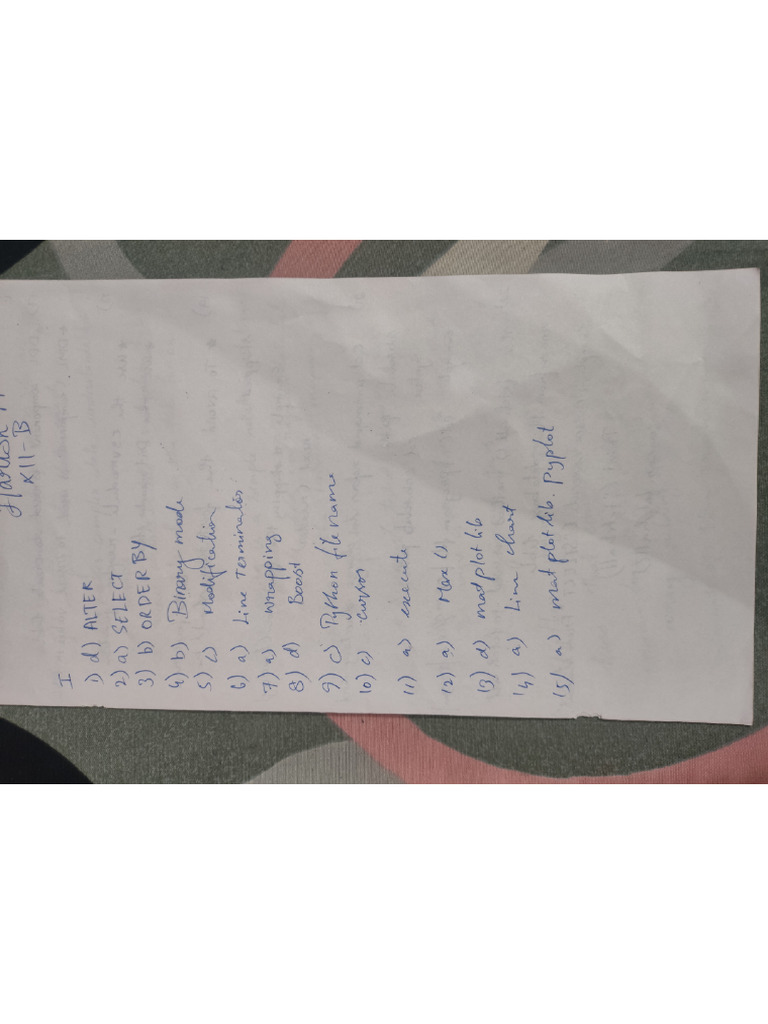 XII-B
I
1) d) ALTER
2) a) SELECT
3) b) ORDER BY
4) b) Binary mode
5) c) Modification
6) a) Line Terminator
7) a) Wrapping
8) d) Boost
9) c) Python file name
10) c) cursor
11) a) execute
12) a) Max ()
13) d) matplotlib
14) a) Line chart
15) a) matplotlib. pyplot